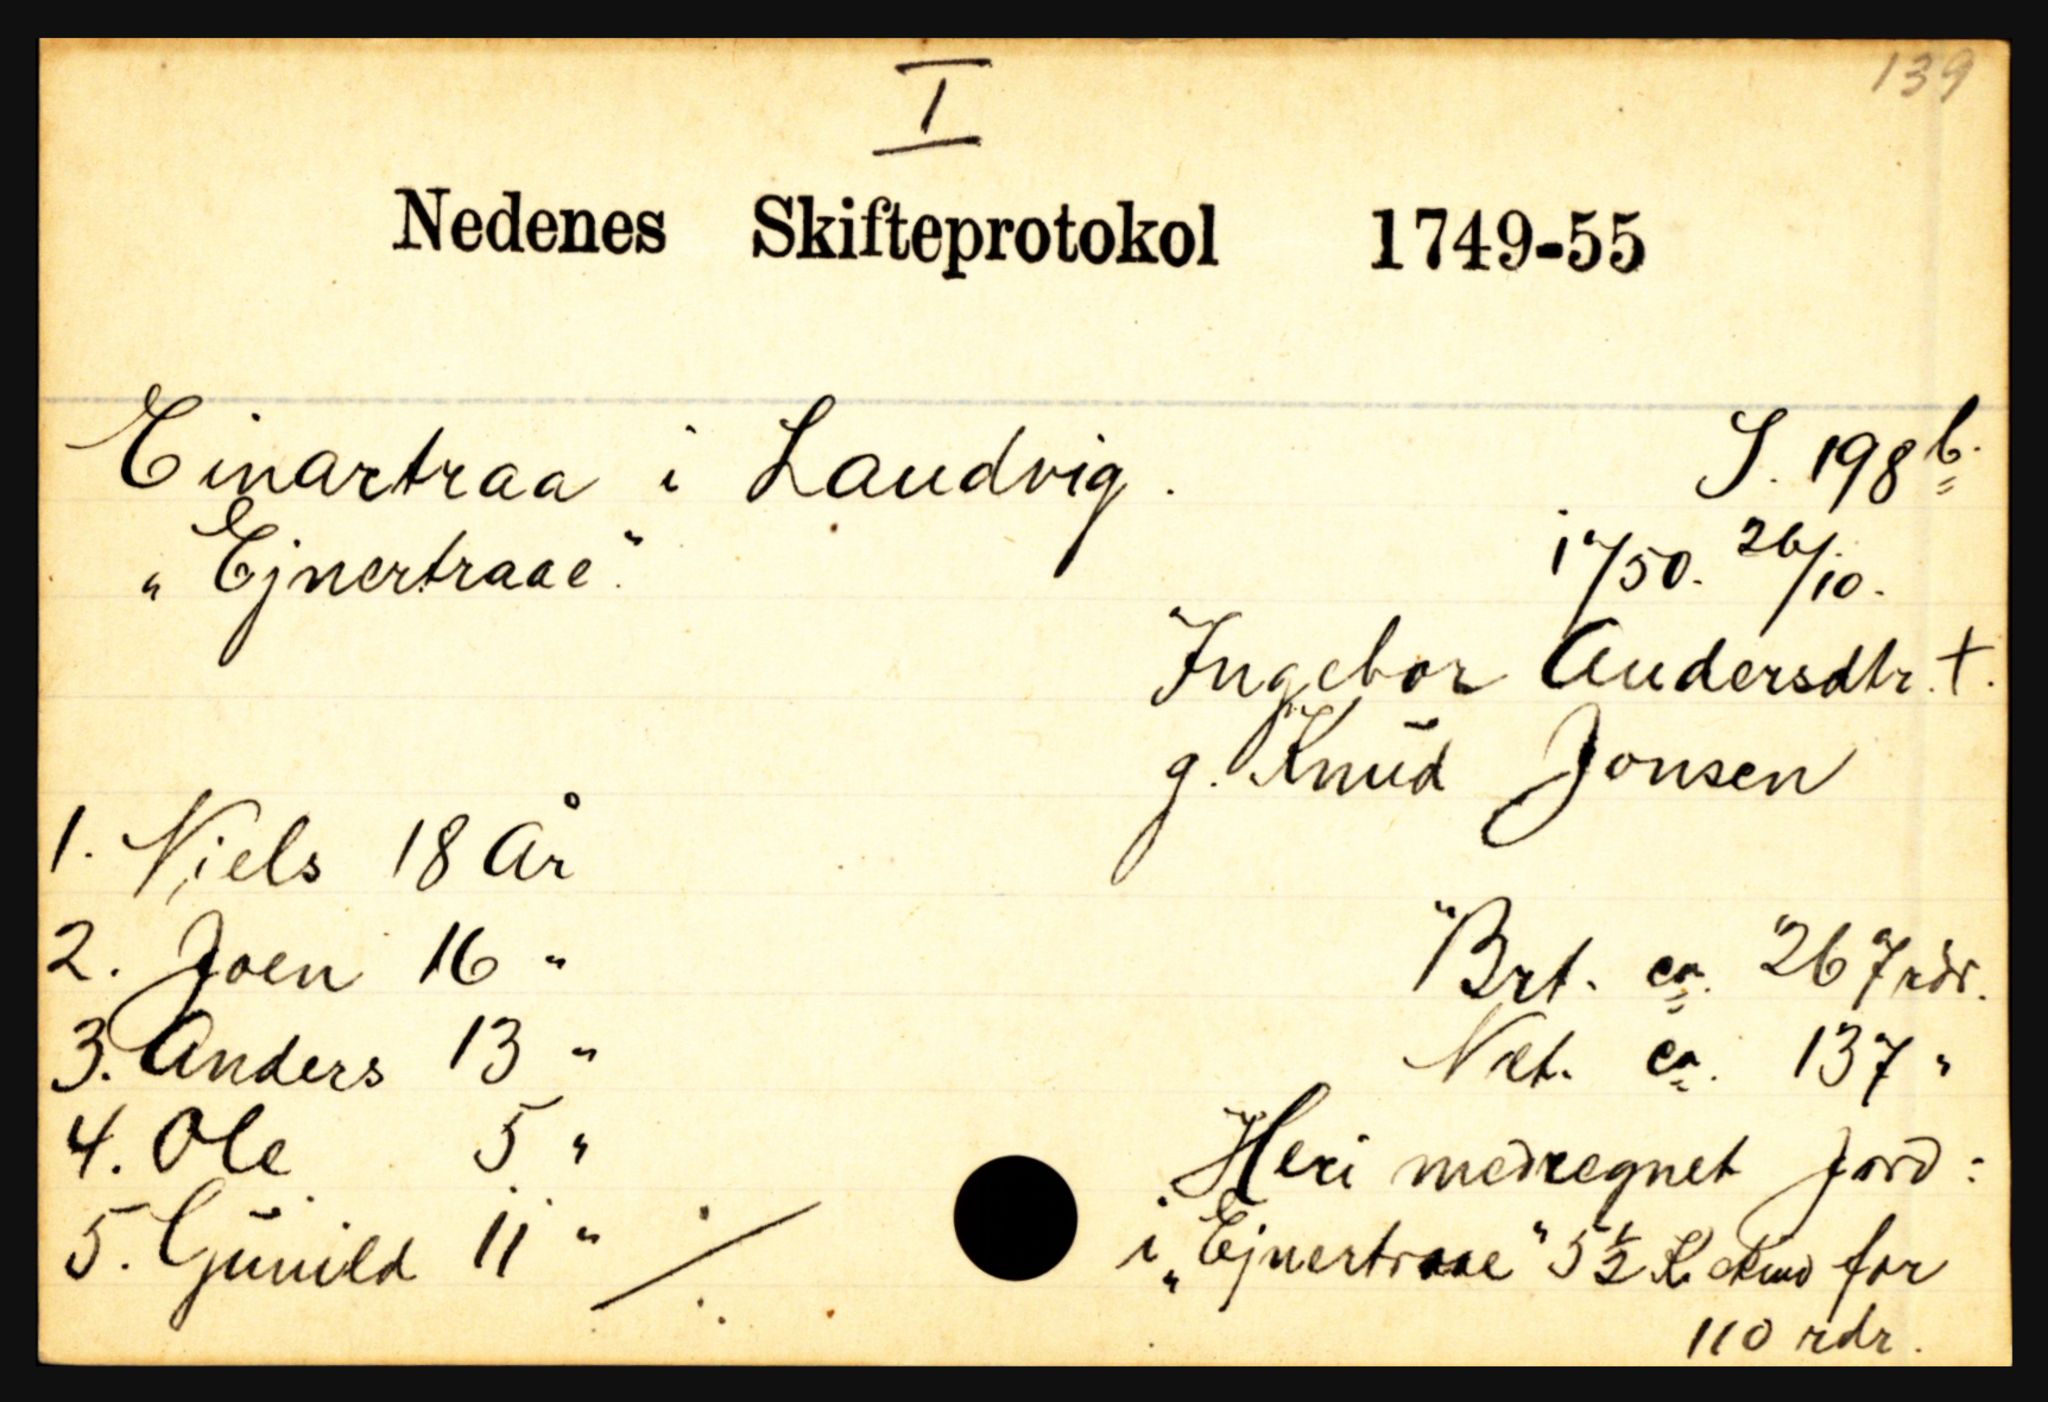 139
I
Nedenes Skifteprotokol 1749-55
Einartraa i Landvig. S. 198b.
"Ejnertraae". 17/50. 26/10.
Ingebor Andersdtr. †.
g. Knud Jonsen
1. Niels 18 År
2. Joen 16 "
Brt. ca. 267 rdr.
3. Anders 13 "
Net. ca. 137 "
4. Ole 5 "
Heri medregnet Jord:
5. Gunild 11 "
i "Ejnertraae" 5½ K. skind for
110 rdr.